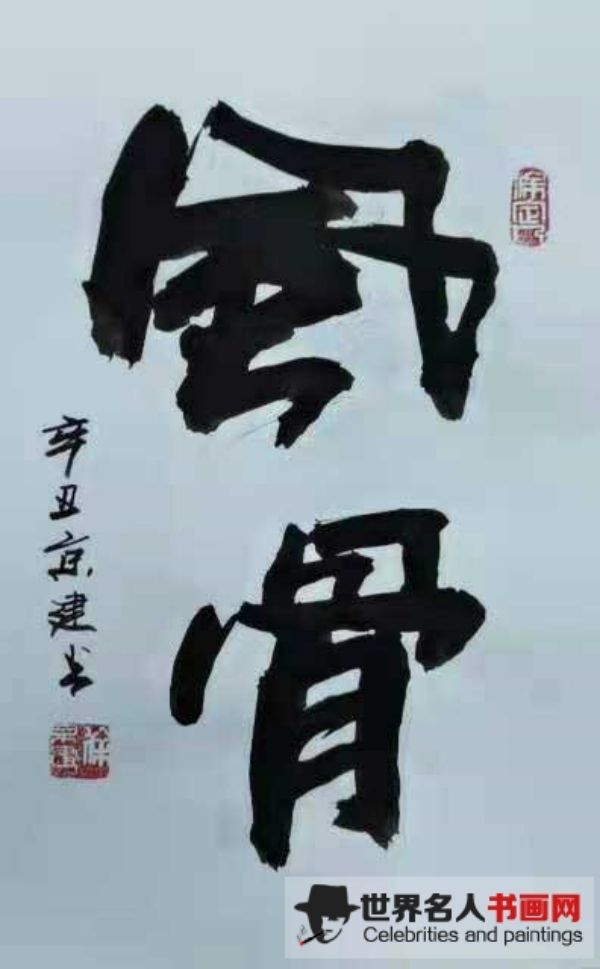 风骨
辛丑京建书
世界名人书画网
Celebrities and paintings